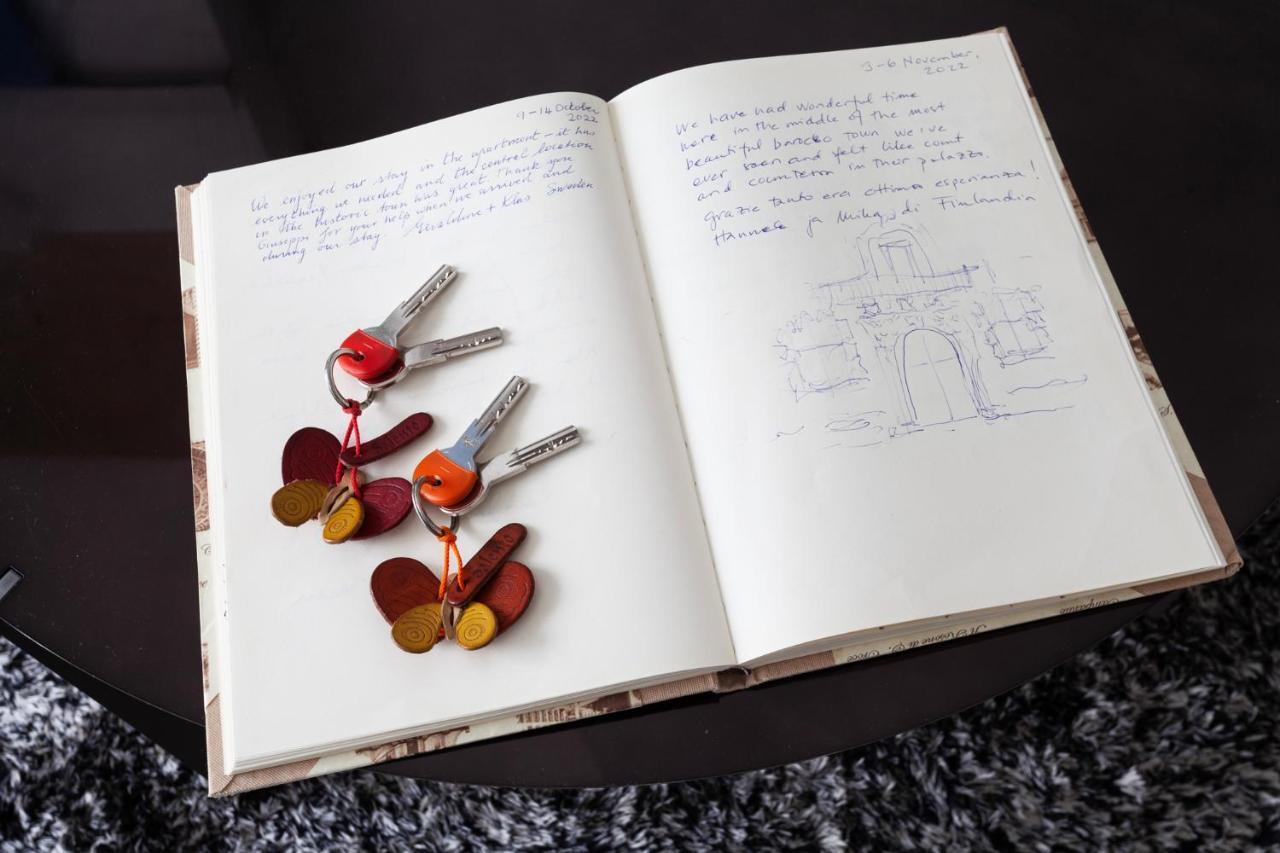 9-14 October
2022
We enjoyed our stay in the apartment - it has
everything we needed and the central location
in the historic town was great. Thank you
Giuseppi for your help when we arrived and
during our stay. Geraldine + Klas Sweden
3-6 November,
2022
We have had wonderful time
here in the middle of the most
beautiful barocko town we've
ever seen and felt like count
and countess in their palazzo.
Grazie tanto era ottima esperianza!
Hannele ja Mika, di Finlandia
Salento
Salento